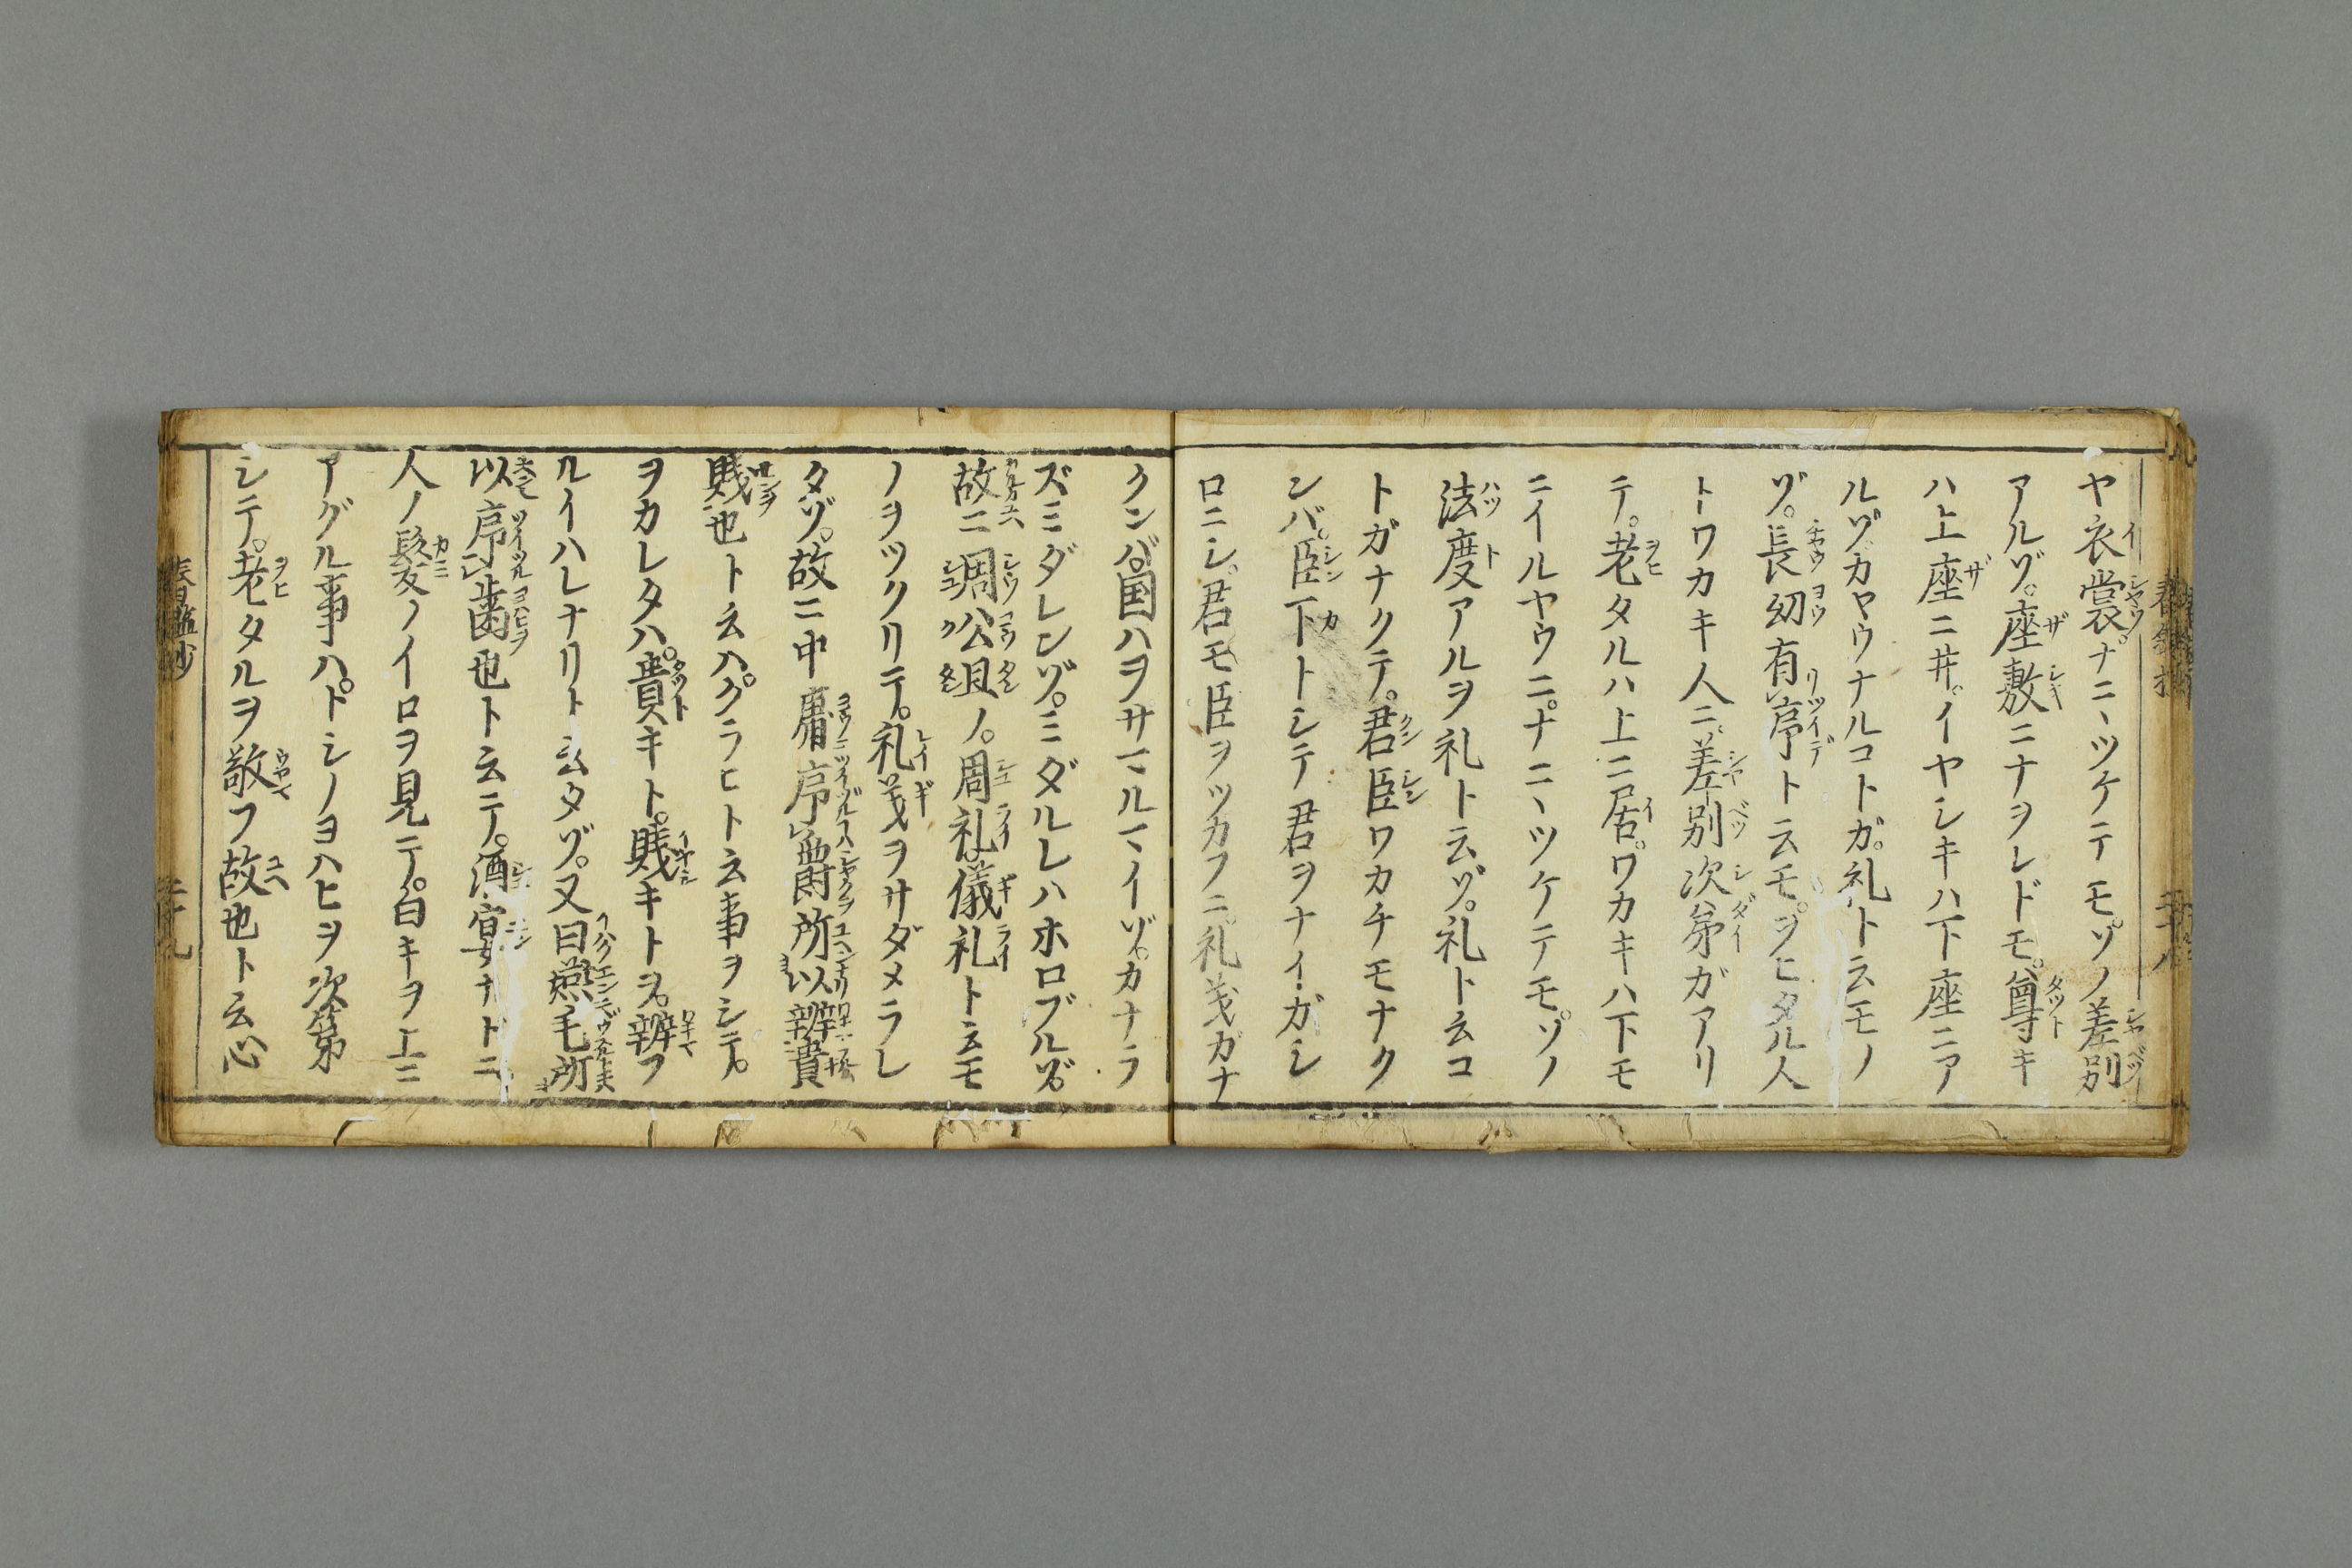 ヤ衣裳。ナニヽツケテモ。ソノ差別
アルゾ。座敷ニナヲレドモ。尊キ
ハ上座ニ井。イヤシキハ下座ニア
ルゾ。カヤウナルコトガ。礼ト云モノ
ゾ。長幼有序ト云モ。ヲヒタル人
トワカキ人ニ。差別次第ガアリ
テ。老タルハ上ニ居。ワカキハ下モ
ニイルヤウニ。ナニヽツケテモ。ソノ
法度アルヲ礼ト云ゾ。礼ト云コ
トガナクテ。君臣ワカチモナク
ンバ。臣下トシテ君ヲナイガシ
ロニシ。君モ臣ヲツカフニ。礼義ガナ
クンバ。国ハヲサマルマイゾ。カナラ
ズミダレンゾ。ミダルレハホロブルゾ。
故ニ周公旦ノ。周礼。儀礼ト云モ
ノヲツクリテ。礼義ヲサダメラレ
タゾ。故ニ中庸序爵所以辨貴
賤也ト云ハ。クラヒト云事ヲシテ。
ヲカレタハ。貴キト。賤キトヲ。辨フ
ルイハレナリト云タゾ。又曰燕毛所
以序歯也ト云テ。酒宴ナドニ
人ノ髪ノイロヲ見テ。白キヲ上ニ
アグル事ハ。トシノヨハヒヲ次第
シテ。老タルヲ敬フ故也ト云心